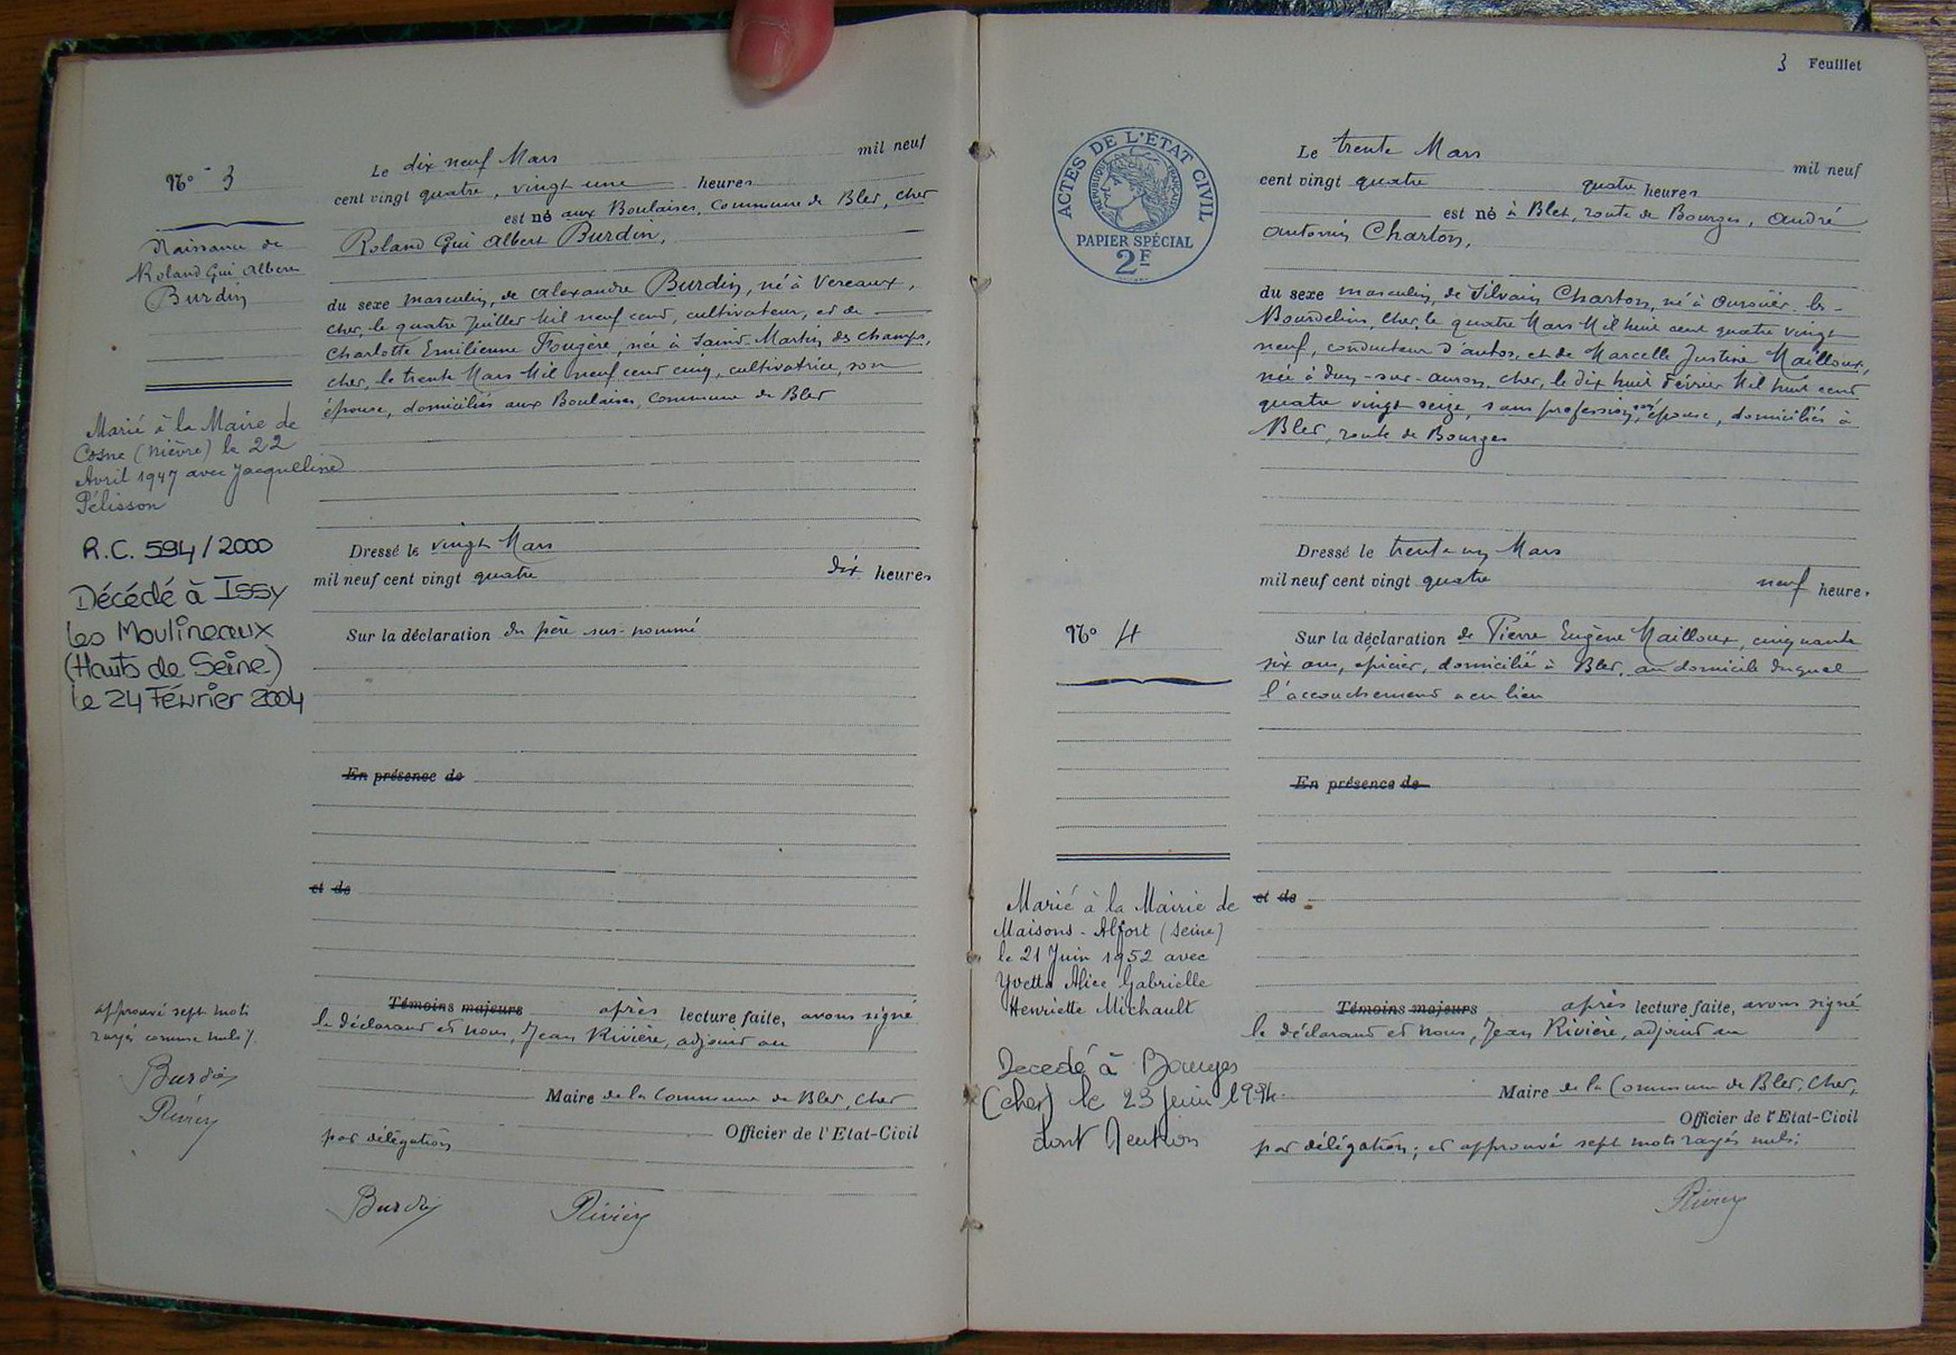 N° 3
Naissance de
Roland Gui Albert
Burdin
Marié à la Mairie de
Cosne (Nièvre) le 22
Avril 1947 avec Jacqueline
Pélisson
R.C. 594/2000
Décédé à Issy
les Moulineaux
(Hauts de Seine)
le 24 Février 2004
approuvé sept mots
rayés comme nuls
Burdin
Rivière
Le dix neuf Mars mil neuf
cent vingt quatre, vingt une heures
est né aux Boulaises, Commune de Blet, Cher
Roland Gui Albert Burdin,
du sexe masculin, de Alexandre Burdin, né à Vereaux,
Cher, le quatre Juillet Mil neuf cent, cultivateur, et de
Charlotte Emilienne Fougère, née à Saint-Martin des Champs,
Cher, le trente Mars Mil neuf cent cinq, cultivatrice, son
épouse, domiciliés aux Boulaises, Commune de Blet
Dressé le vingt Mars
mil neuf cent vingt quatre dix heures
Sur la déclaration du père sus-nommé
En présence de
et de
Témoins majeurs après lecture faite, avons signé
le déclarant et nous, Jean Rivière, adjoint au
Maire de la Commune de Blet, Cher
Officier de l'Etat-Civil
par délégation
Burdin Rivière
3 Feuillet
ACTES DE L'ÉTAT CIVIL
RÉPUBLIQUE FRANÇAISE
PAPIER SPÉCIAL
2F
N° 4
Marié à la Mairie de
Maisons-Alfort (Seine)
le 21 Juin 1952 avec
Yvette Alice Gabrielle
Henriette Michault
Decedé à Bourges
(cher) le 23 juin 1994
dont Mention
Le trente Mars mil neuf
cent vingt quatre quatre heures
est né à Blet, route de Bourges, André
Antonin Charton,
du sexe masculin, de Silvain Charton, né à Ourouër-les-
Bourdelins, Cher, le quatre Mars Mil huit cent quatre vingt
neuf, conducteur d'autos, et de Marcelle Justine Mailloux,
née à Dun-sur-Auron, Cher, le dix huit Février Mil huit cent
quatre vingt seize, sans profession, son épouse, domiciliés à
Blet, route de Bourges
Dressé le trente un Mars
mil neuf cent vingt quatre neuf heures
Sur la déclaration de Pierre Eugène Mailloux, cinquante
six ans, épicier, domicilié à Blet, au domicile duquel
l'accouchement a eu lieu
En présence de
et de
Témoins majeurs après lecture faite, avons signé
le déclarant et nous, Jean Rivière, adjoint au
Maire de la Commune de Blet, Cher,
Officier de l'Etat-Civil
par délégation; et approuvé sept mots rayés nuls;
Rivière